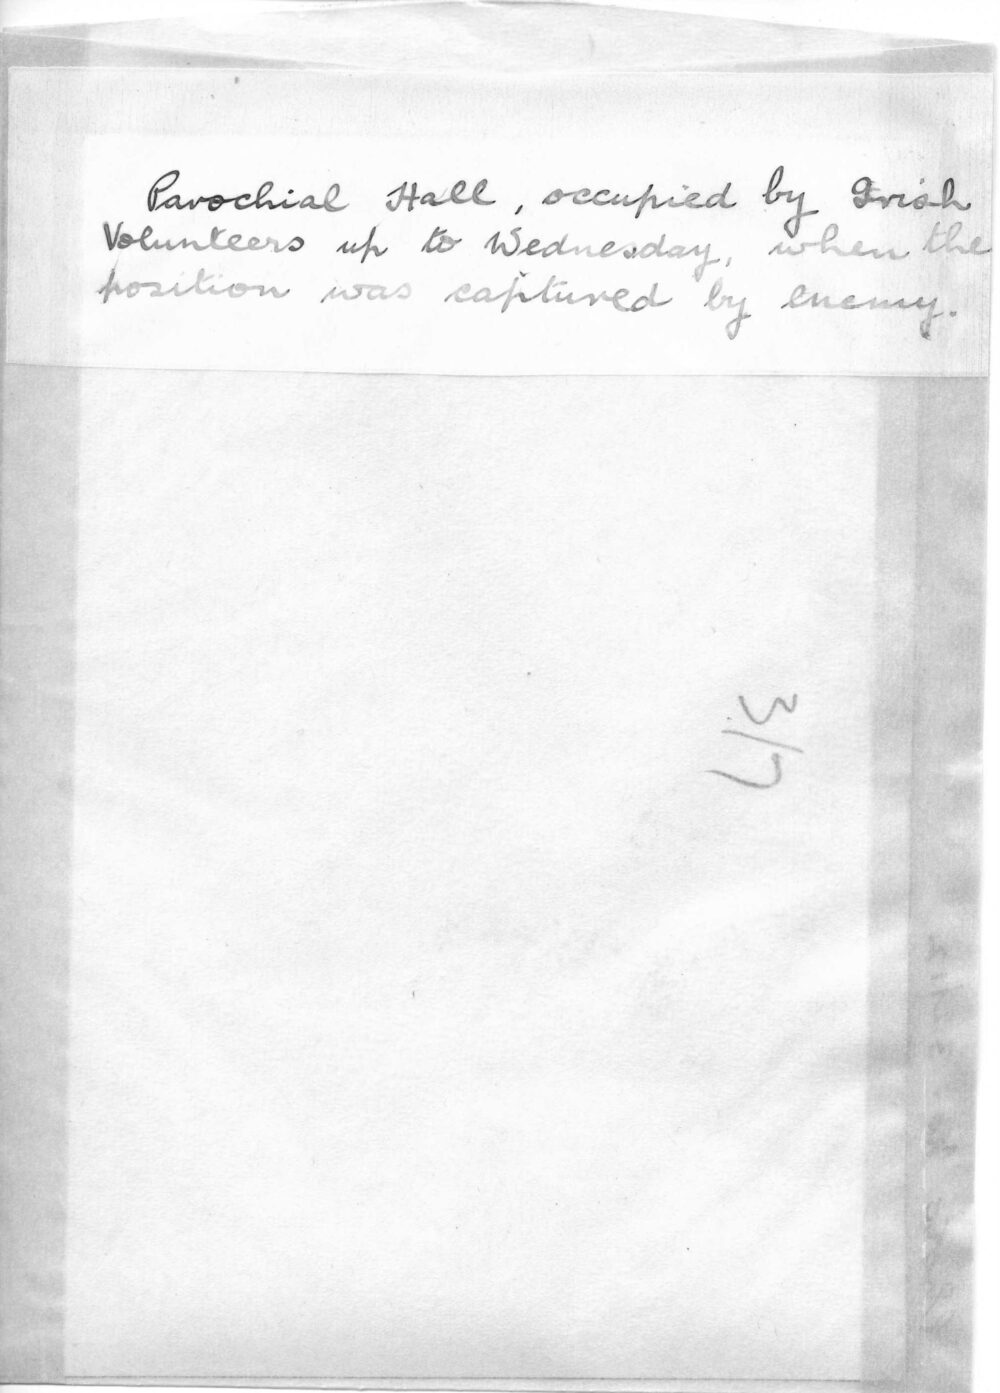 Parochial Hall, occupied by Irish
Volunteers up to Wednesday, when the
position was captured by enemy.
3/7